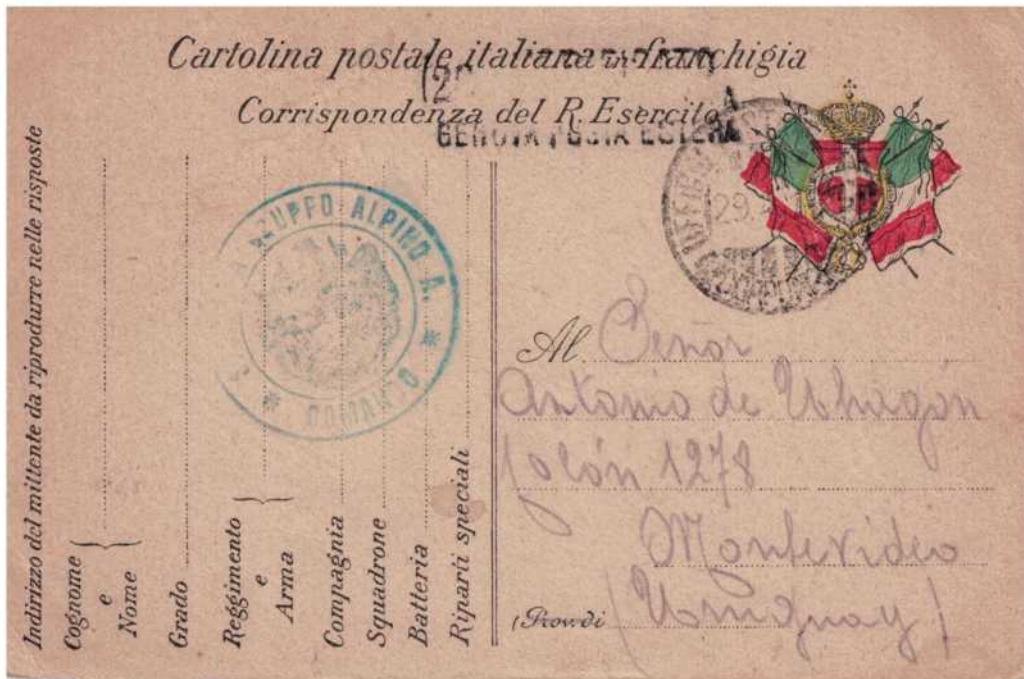 Cartolina postale italiana in franchigia
(2
Corrispondenza del R. Esercito
GENOVA POSTA ESTERA
Indirizzo del mittente da riprodurre nelle risposte
Cognome
e
Nome
Grado
Reggimento
e
Arma
Compagnia
Squadrone
Batteria
Riparti speciali
ALPINO A. * COMANDO *
UFFICIO
29
Al Señor
Antonio de Uhagón
1278
Montevideo
(Prov. di (Uruguay)